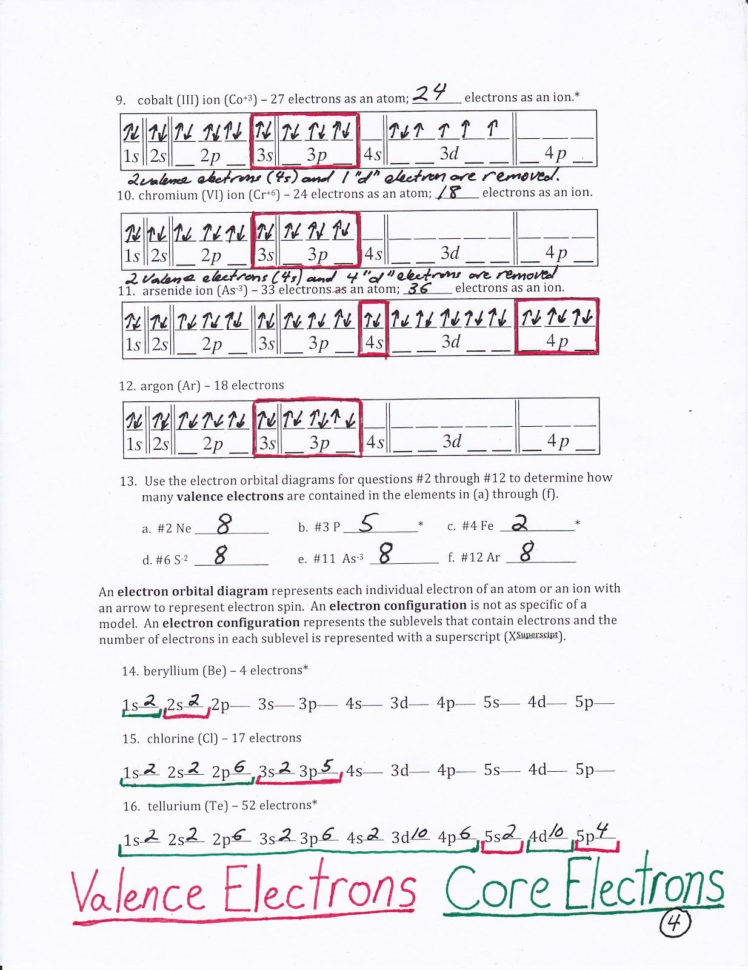 9. cobalt (III) ion (Co+3) – 27 electrons as an atom; 24 electrons as an ion.*
1s 2s 2p 3s 3p 4s 3d 4p
2 valence electrons (4s) and 1 "d" electron are removed.
10. chromium (VI) ion (Cr+6) – 24 electrons as an atom; 18 electrons as an ion.
1s 2s 2p 3s 3p 4s 3d 4p
2 valence electrons (4s) and 4 "d" electrons are removed
11. arsenide ion (As-3) – 33 electrons as an atom; 36 electrons as an ion.
1s 2s 2p 3s 3p 4s 3d 4p
12. argon (Ar) – 18 electrons
1s 2s 2p 3s 3p 4s 3d 4p
13. Use the electron orbital diagrams for questions #2 through #12 to determine how
many valence electrons are contained in the elements in (a) through (f).
a. #2 Ne 8 b. #3 P 5 * c. #4 Fe 2 *
d. #6 S-2 8 e. #11 As-3 8 f. #12 Ar 8
An electron orbital diagram represents each individual electron of an atom or an ion with
an arrow to represent electron spin. An electron configuration is not as specific of a
model. An electron configuration represents the sublevels that contain electrons and the
number of electrons in each sublevel is represented with a superscript (XSuperscipt).
14. beryllium (Be) – 4 electrons*
1s 2 2s 2 2p 3s 3p 4s 3d 4p 5s 4d 5p
15. chlorine (Cl) – 17 electrons
1s 2 2s 2 2p 6 3s 2 3p 5 4s 3d 4p 5s 4d 5p
16. tellurium (Te) – 52 electrons*
1s 2 2s 2 2p 6 3s 2 3p 6 4s 2 3d 10 4p 6 5s 2 4d 10 5p 4
Valence Electrons Core Electrons
4